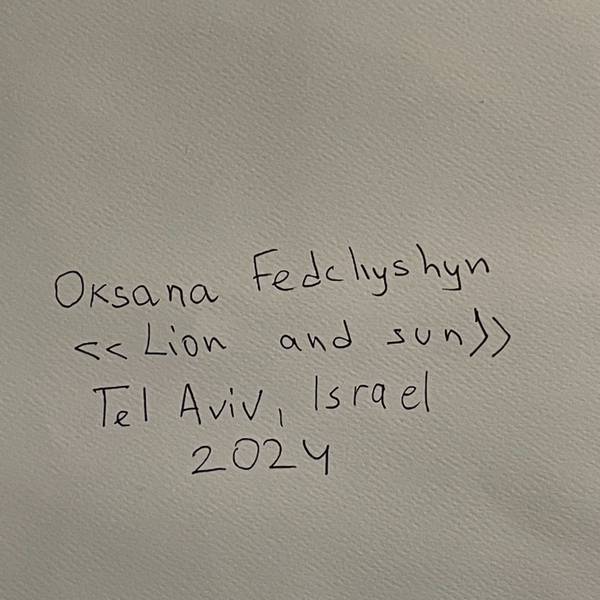 Oksana Fedchyshyn
<< Lion and sun>>
Tel Aviv, Israel
2024